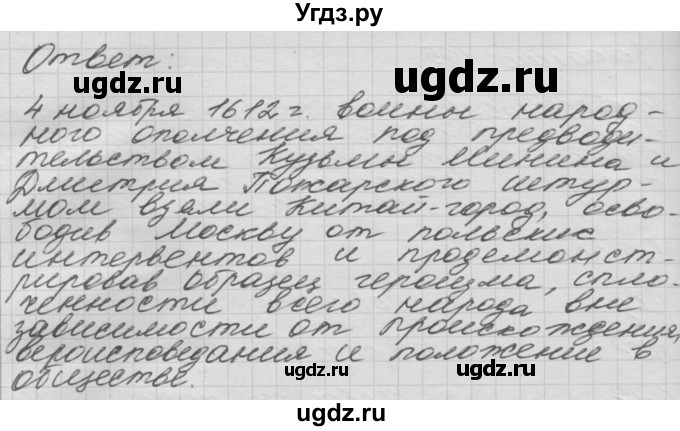 Угдз.ру
Ответ:
ugdz.ru ugdz.ru
4 ноября 1612 г. воины народ-
ного ополчения под предводи-
тельством Кузьмы Минина и
Дмитрия Пожарского штур-
мом взяли Китай-город, осво-
бодив Москву от польских
интервентов и продемонст-
рировав образец героизма, спло-
ченности всего народа вне
зависимости от происхождения,
вероисповедания и положение в
обществе.
ugdz.ru ugdz.ru
ugdz.ru